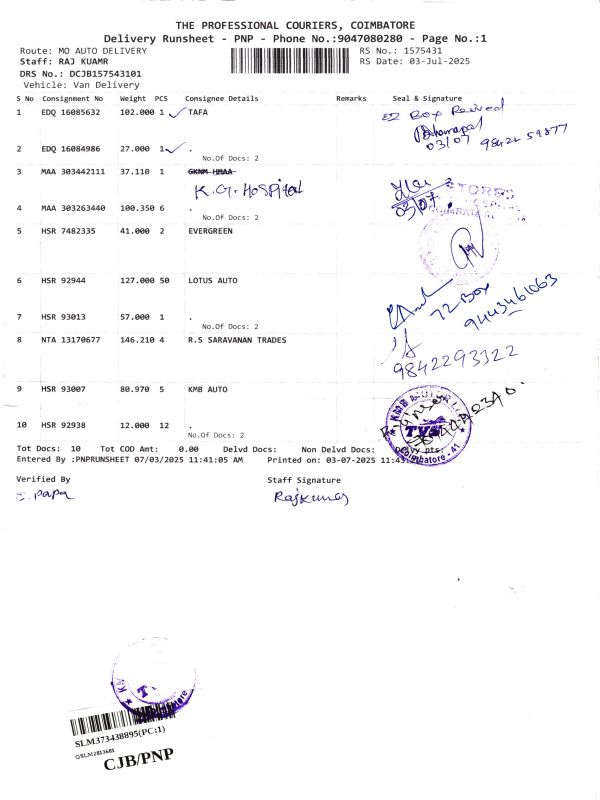 THE PROFESSIONAL COURIERS, COIMBATORE
Delivery Runsheet - PNP - Phone No.:9047080280 - Page No.:1
Route: MO AUTO DELIVERY RS No.: 1575431
Staff: RAJ KUAMR RS Date: 03-Jul-2025
DRS No.: DCJB157543101
Vehicle: Van Delivery
S No Consignment No Weight PCS Consignee Details Remarks Seal & Signature
1 EDQ 16085632 102.000 1 TAFA
03/07 98422 59877
2 EDQ 16084986 27.000 1 .
No.Of Docs: 2
3 MAA 303442111 37.110 1 GKNM HMAA
K.G. Hospital
03/07
4 MAA 303263440 100.350 6 .
No.Of Docs: 2
5 HSR 7482335 41.000 2 EVERGREEN
6 HSR 92944 127.000 50 LOTUS AUTO
72 Box
9443461063
7 HSR 93013 57.000 1 .
No.Of Docs: 2
8 NTA 13170677 146.210 4 R.S SARAVANAN TRADES
9842293322
9 HSR 93007 80.970 5 KMB AUTO
TVS
Coimbatore - 41
10 HSR 92938 12.000 12 .
No.Of Docs: 2
Tot Docs: 10 Tot COD Amt: 0.00 Delvd Docs: Non Delvd Docs:
Entered By :PNPRUNSHEET 07/03/2025 11:41:05 AM Printed on: 03-07-2025
Verified By Staff Signature
Papa Rajkumar
SLM373438895(PC:1)
CJB/PNP